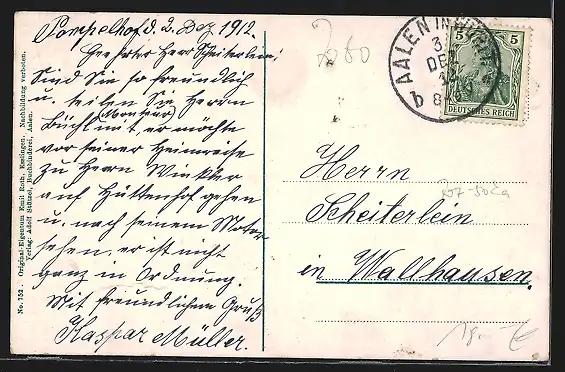 Pompelhof d. 2. Dez. 1912.
Geehrter Herr Scheiterlein!
Sind Sie so freundlich
u. teilen Sie Herrn
Büchl (Monteur) mit er möchte
vor seiner Heimreise
zu Herrn Winkler
auf Hüttenhof gehen
u. nach seinem Motor
sehen, er ist nicht
ganz in Ordnung.
Mit freundlichem Gruß
Kaspar Müller.
No. 752. Original-Eigentum Emil Roth, Esslingen. Nachbildung verboten.
Verlag: Adolf Stützel, Buchbinderei, Aalen.
AALEN IN WÜRTT
3
DEZ
12
b 8
5 5
DEUTSCHES REICH
Herrn
Scheiterlein
in Wallhausen.